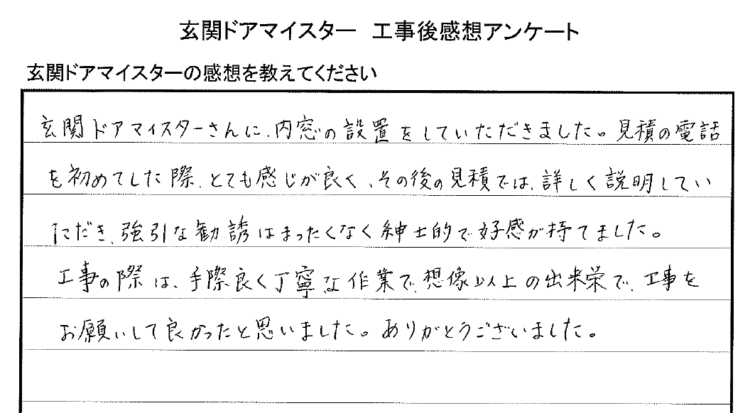 玄関ドアマイスター　工事後感想アンケート
玄関ドアマイスターの感想を教えてください
玄関ドアマイスターさんに、内窓の設置をしていただきました。見積の電話
を初めてした際、とても感じが良く、その後の見積では、詳しく説明してい
ただき、強引な勧誘はまったくなく紳士的で好感が持てました。
工事の際は、手際良く丁寧な作業で、想像以上の出来栄で、工事を
お願いして良かったと思いました。ありがとうございました。